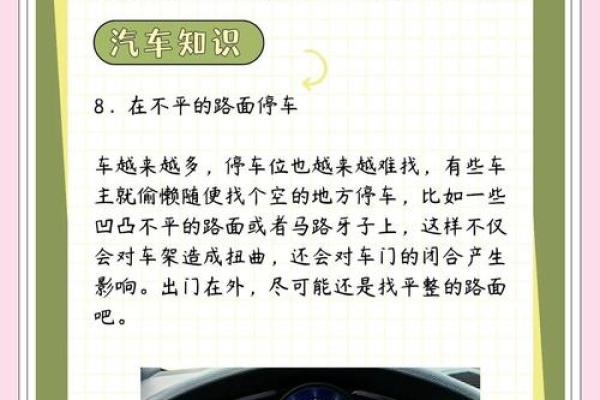 汽车知识
8．在不平的路面停车
车越来越多，停车位也越来越难找，有些车
主就偷懒随便找个空的地方停车，比如一些
凹凸不平的路面或者马路牙子上，这样不仅
会对车架造成扭曲，还会对车门的闭合产生
影响。出门在外，尽可能还是找平整的路面
吧。